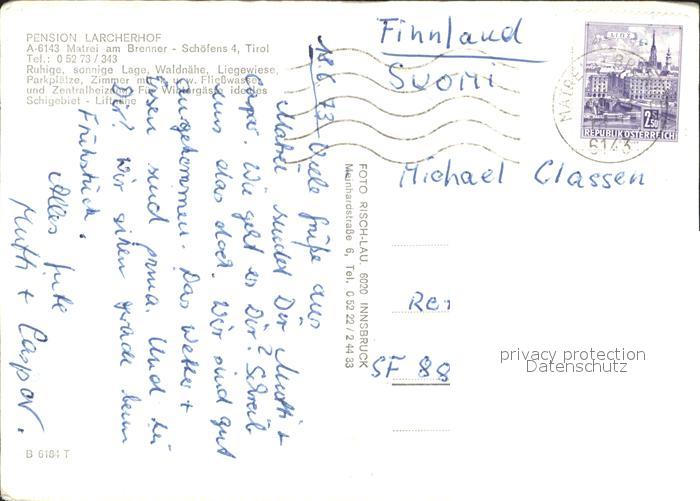 PENSION LARCHERHOF
A-6143 Matrei am Brenner - Schöfens 4, Tirol
Tel.: 0 52 73 / 343
Ruhige, sonnige Lage, Waldnähe, Liegewiese,
Parkplätze, Zimmer m. u. Fließwasser
und Zentralheizung. Für Wintergäste ideales
Schigebiet - Liftnähe
18.6.73 Viele Grüße aus
Matrei sendet Dir Mutti +
Caspar. Wie geht es Dir? Schreib
uns das doch. Wir sind gut
angekommen. Das Wetter +
Essen sind prima. Und bei
Dir? Wir sitzen gerade beim
Frühstück.
Alles Gute
Mutti + Caspar.
B 6184 T
FOTO RISCH-LAU, 6020 INNSBRUCK
Meinhardstraße 6, Tel. 0 52 22 / 2 44 33
Finnland
SUOMI
LINZ
2.50
REPUBLIK ÖSTERREICH
6143
Michael Classen
SF 88
privacy protection
Datenschutz